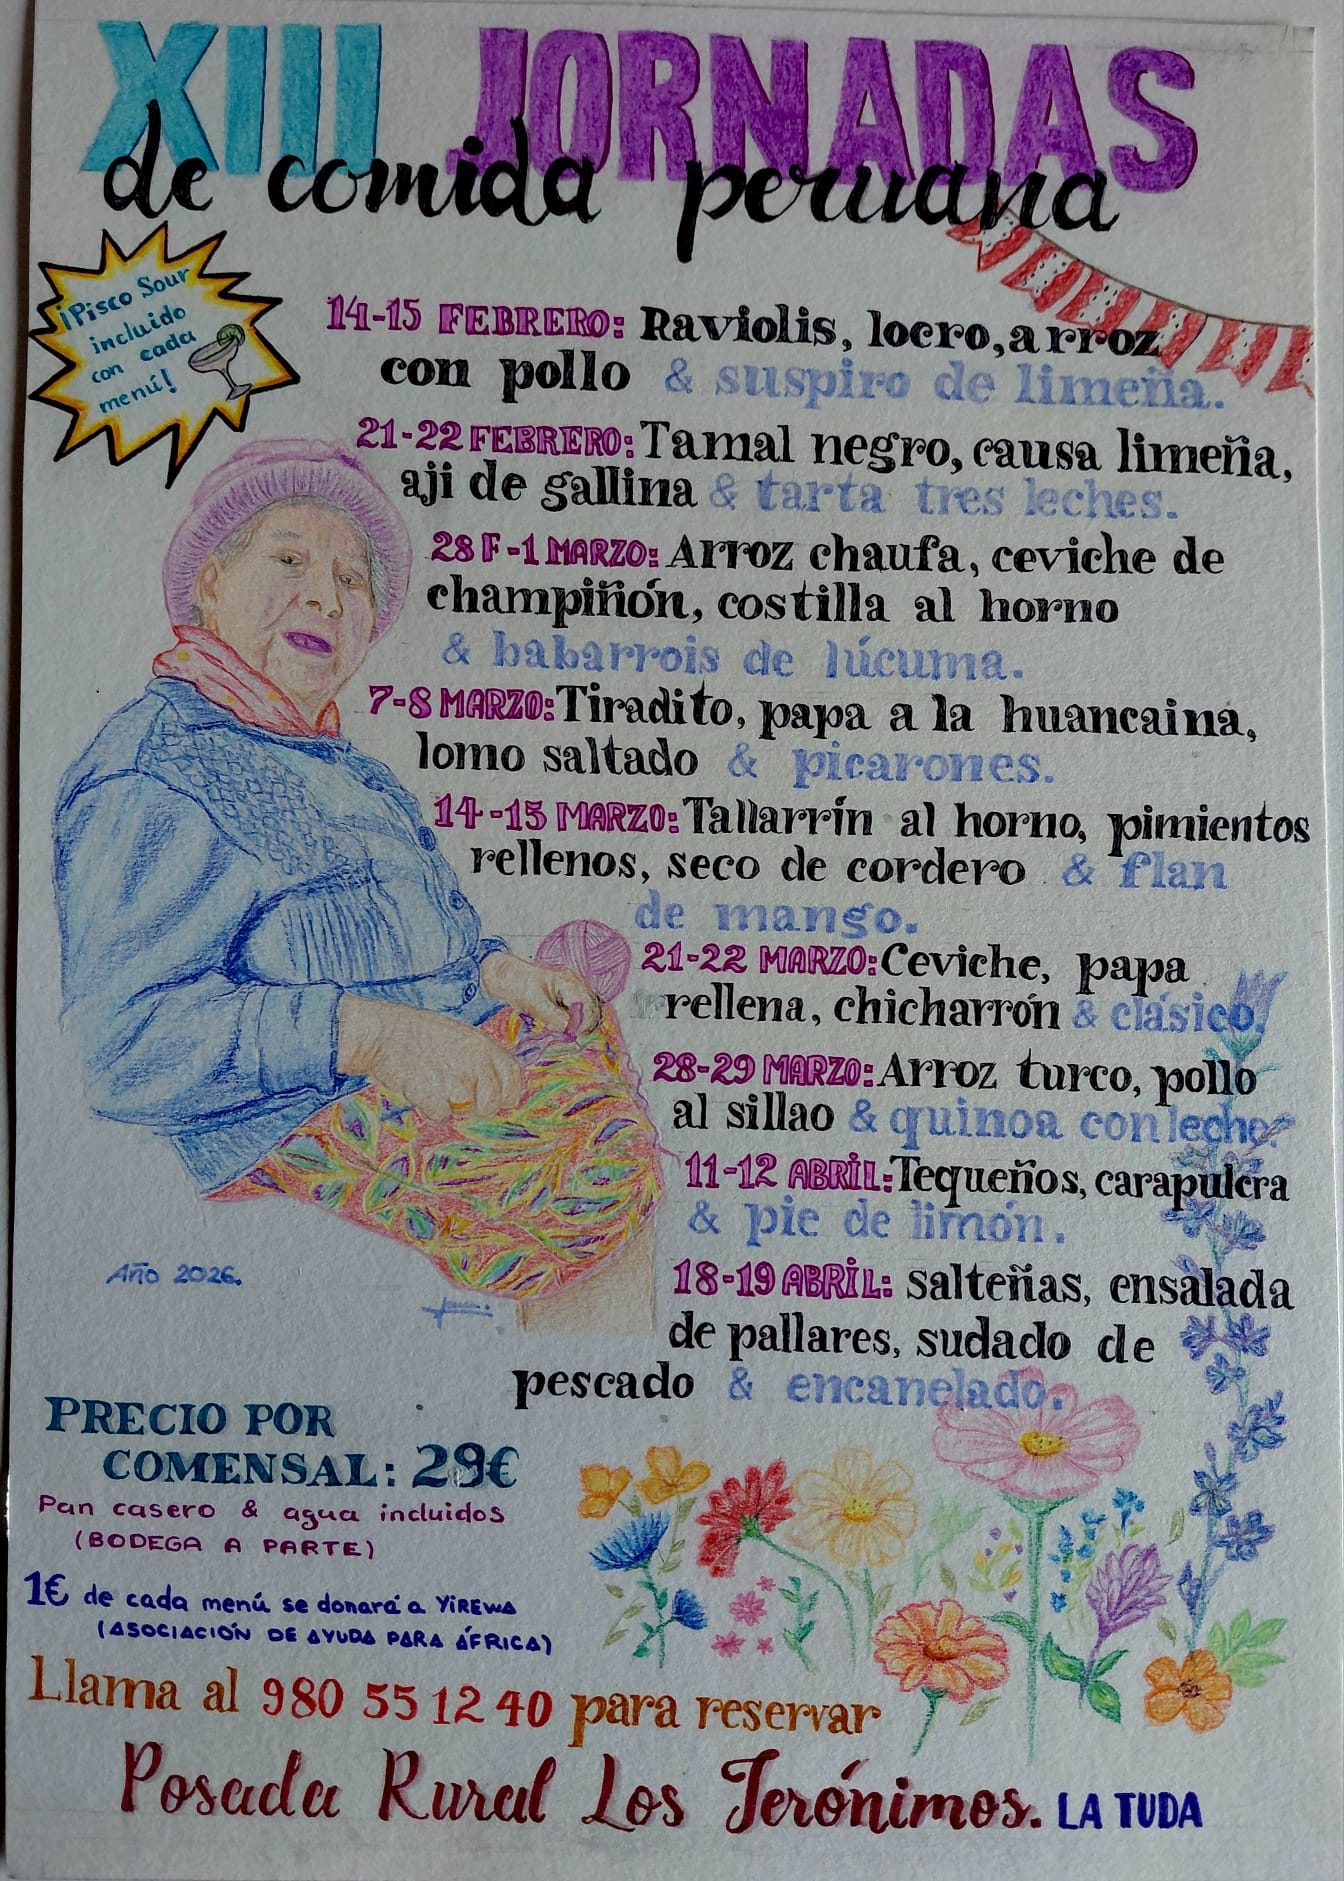 XIII JORNADAS
de comida peruana
¡Pisco Sour
incluido
con cada
menú!
14-15 FEBRERO: Raviolis, locro, arroz
con pollo & suspiro de limeña.
21-22 FEBRERO: Tamal negro, causa limeña,
aji de gallina & tarta tres leches.
28 F-1 MARZO: Arroz chaufa, ceviche de
champiñón, costilla al horno
& babarrois de lúcuma.
7-8 MARZO: Tiradito, papa a la huancaina,
lomo saltado & picarones.
14-15 MARZO: Tallarrín al horno, pimientos
rellenos, seco de cordero & flan
de mango.
21-22 MARZO: Ceviche, papa
rellena, chicharrón & clásico!
28-29 MARZO: Arroz turco, pollo
al sillao & quinoa con leche.
11-12 ABRIL: Tequeños, carapulcra
& pie de limón.
18-19 ABRIL: salteñas, ensalada
de pallares, sudado de
pescado & encanelado.
Año 2026.
PRECIO POR
COMENSAL: 29€
Pan casero & agua incluidos
(BODEGA A PARTE)
1€ de cada menú se donará a YIREWA
(ASOCIACIÓN DE AYUDA PARA ÁFRICA)
Llama al 980 55 12 40 para reservar
Posada Rural Los Jerónimos. LA TUDA